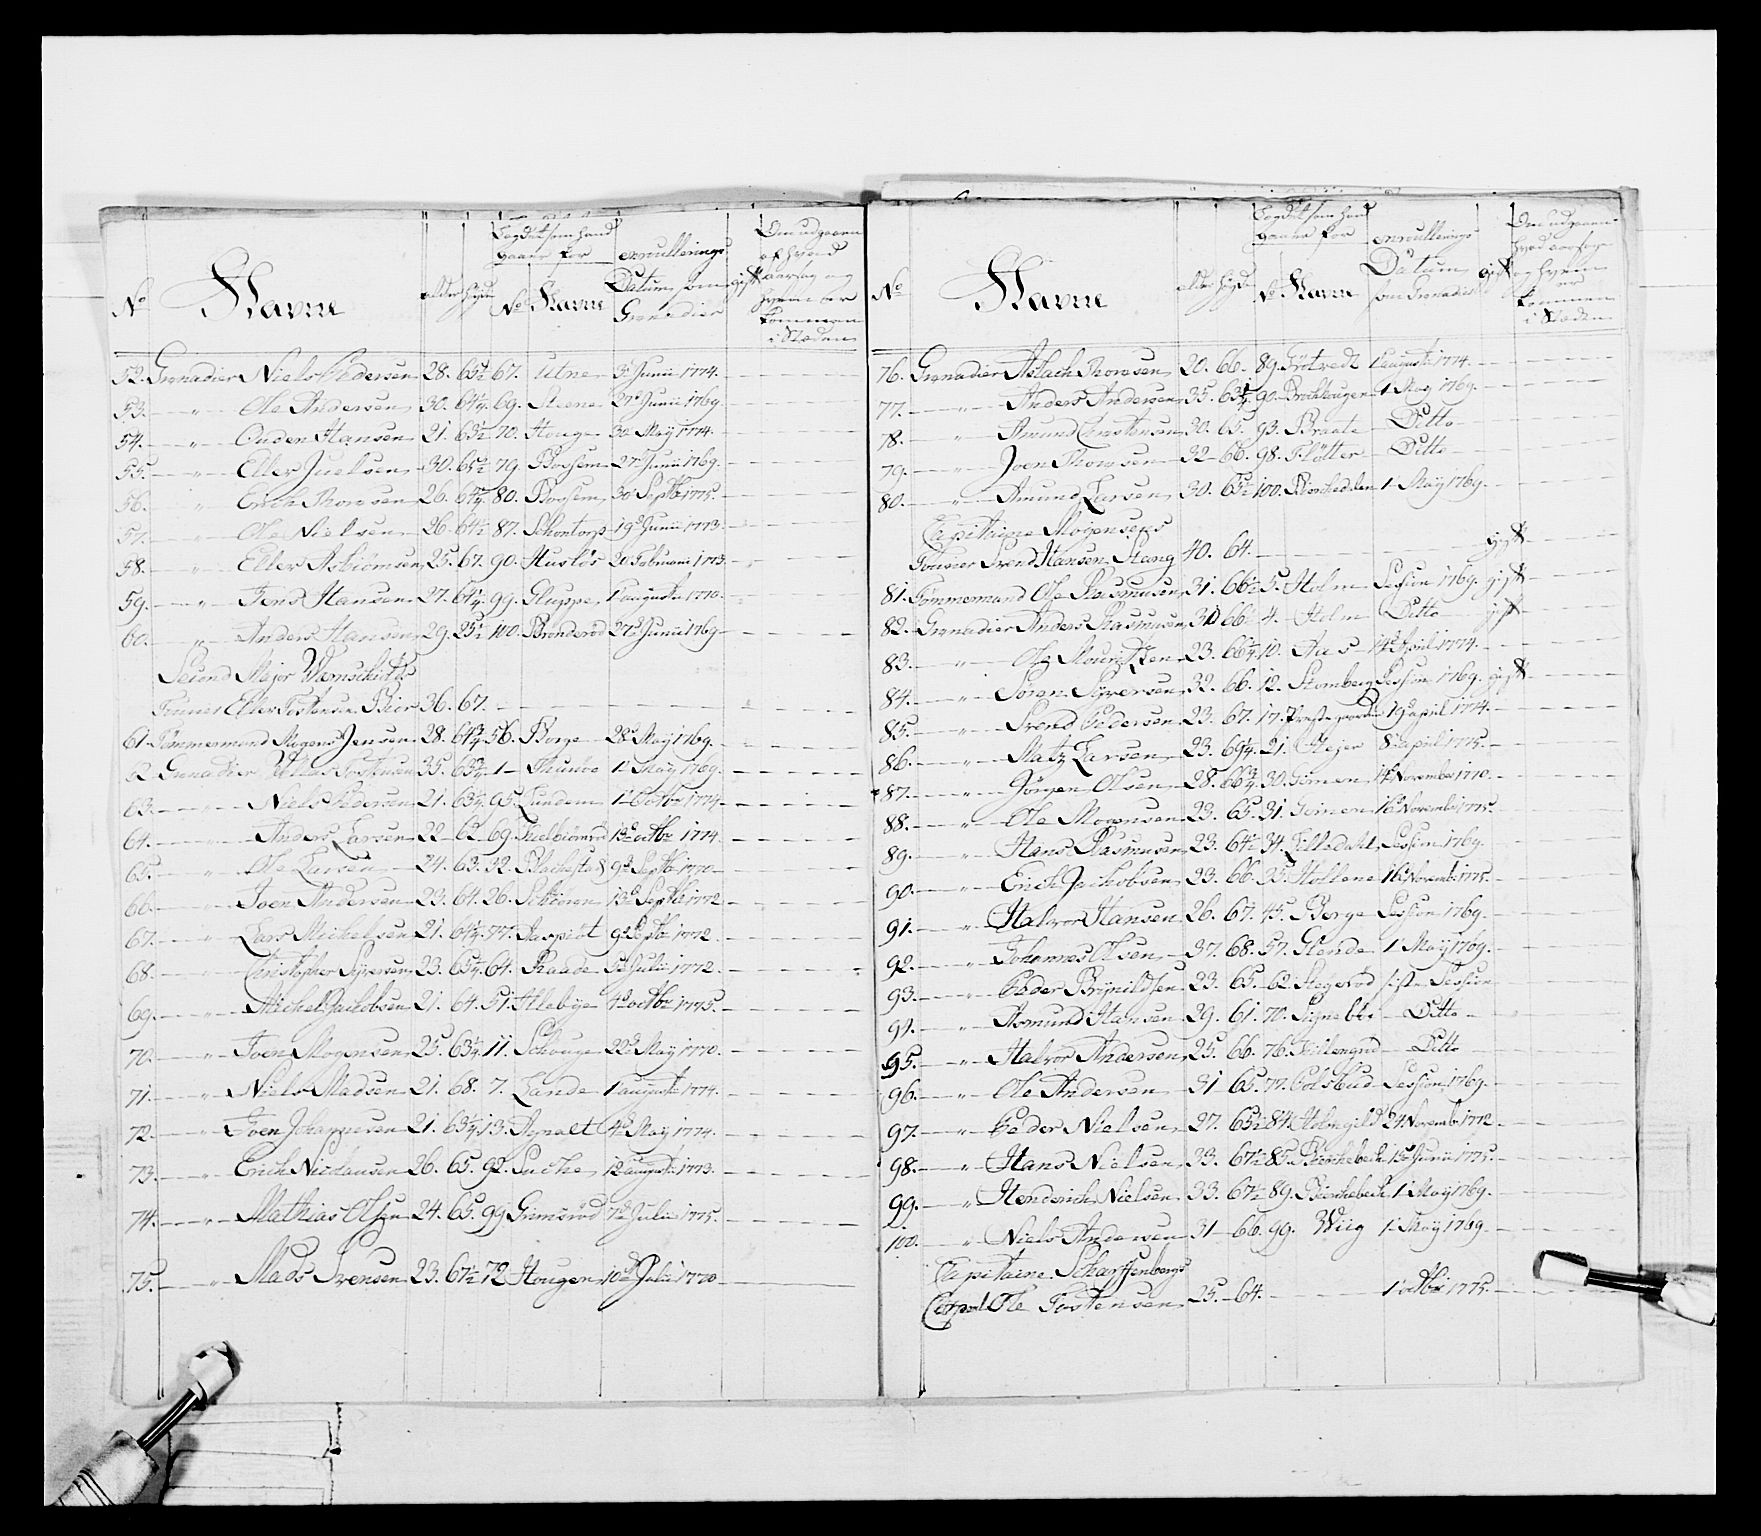 No Navne alder høyde Lægdet som hand gaaer for No Navne enroullerings Datum som Grenadier gift Om udgaaen af hvad aarsag og hvem er kommen i Stæden
52. Grenadier Niels Pedersen 28. 65½ 67. Utne 5 Junii 1774.
53. " Ole Andersen 30. 64¼ 69. Steene 27de Junii 1769.
54. " Ouden Hansen 21. 63½ 70. Houge 30 Maÿ 1774.
55. " Eller Juelsen 30. 65½ 79. Bossem 27de Junii 1769.
56. " Erich Thoresen 26. 64¾ 80. Bossem 30 Septbr 1775.
57. " Ole Nielsen 26. 64½ 87. Schontorp 19de Junii 1773.
58. " Eller Asbiörnsen 25. 67. 90. Huslös 20 Februarii 1773.
59. " Jens Hansen 27. 64¼ 99. Gluppe 1 augusti 1770.
60. " Anders Hansen 29. 25½ 100. Brönderöd 27de Junii 1769
Second Major Wernschiolds
Fourier Eller Tostensen Bier 36. 67.
61. Tömmermand Mogens Jensen 28. 64¾ 56. Borge 28de Maÿ 1769.
62 Grenadier Tostensen 35. 63¾ 1 Thunöe 1 Maÿ 1769.
63. " Niels Pedersen 21. 63¼ 95. Lundem 1 octbr 1774
64. " Anders Larsen 22 62 69. 13de octbr 1774.
65. " Ole Larsen 24. 63. 32. Blachestad 9de Septbr 1770
66. " Joen Andersen 23. 64. 26. 13de Septbr 1772
67. " Lars Michelsen 21. 64¼ 77. Haspiöt 9de Septbr 1772
68. " Christopher Syversen 23. 65¼ 64. Raade 5te Julii 1772.
69. " Michel Jacobsen 21. 64. 51. Allebye 4de octbr 1775.
70. " Joen Mogensen 25. 63¼ 11. Schouge 22de Maÿ 1770.
71. " Niels Madsen 21. 68. 7. Lande 1 augusti 1774.
72. " Joen Johannesen 21. 63¼ 13. Agnalt 4de Maÿ 1774.
73. " Erich Nicolausen 26. 65. 92. Suche 12 augusti 1773.
74. " Mathias Olsen 24. 65. 99 Grimsröd 7de Julii 1775.
75. " Mads Svensen 23. 67½ 72 Hougen 10de Julii 1770
No Navne alder høyde Lægdet som hand gaaer for No Navne enroullerings Datum som Grenadier gift Om udgaaen hvad aarsag og hvem er kommen i Stæden
76. Grenadier Aslach Thoresen 20. 66. 89. 1 augusti 1774.
77. " Anders Andersen 35. 63¼ 90. Brochhougen 1 Maÿ 1769.
78. " Amund Christensen 30. 65. 93. Braate Ditto
79. " Joen Thoresen 32 66. 98. Flötter Ditto
80. " Amund Larsen 30. 65½ 100. 1 Maÿ 1769.
Capitaine Mogensens
Fourier Svend Hansen Stang 40. 64. gift
81. Tömmermand Ole Rasmusen 31. 66½ 5. Holm Session 1769. gift
82. Grenadier Anders Rasmusen 30 66½ 4. Holm Ditto gift
83. " Ole Mouritzen 23. 66¼ 10. Aas 14de April 1774.
84. " Sören Syversen 32. 66. 12. Stomberg Session 1769. gift
85. " Svend Pedersen 23. 67. 17. Prestegaarden 19de april 1774.
86. " Matz Larsen 23. 69¼ 21. Hejer 8de april 1775.
87. " Jörgen Olsen 28. 66¾ 30. Gimen 14de November 1770.
88. " Ole Mogensen 23. 65. 31. Grimen 16de November 1775.
89. " Hans Rasmusen 23. 64½ 34. Session 1769.
90. " Erich Jachobsen 23. 66. 35. Hollene 16de Novembr 1775.
91. " Halvor Hansen 26. 67. 45. Berge Session 1769.
92. " Johannes Olsen 37. 68. 57. Glende 1 Maÿ 1769.
93. " Peder Brynildsen 23. 65. 62. Stegeröd siste Session
94. " Asmund Hansen 29. 61. 70. Signeböe Ditto
95. " Halvor Andersen 25. 66. 76. Ditto
96. " Ole Andersen 31 65. 77. Session 1769.
97. " Peder Nielsen 27. 65½ 84. Holmgild 24 Novembr 1772.
98. " Hans Nielsen 33. 67½ 85. Birchebech 15de Junii 1775.
99. " Henderich Nielsen 33. 67½ 89. Birchebech 1 Maÿ 1769.
100. " Niels Andersen 31 66. 99. Wiig 1 Maÿ 1769
Capitaine Scharffenbergs
Corporal Ole Tostensen 25. 64. 1 octbr 1775.